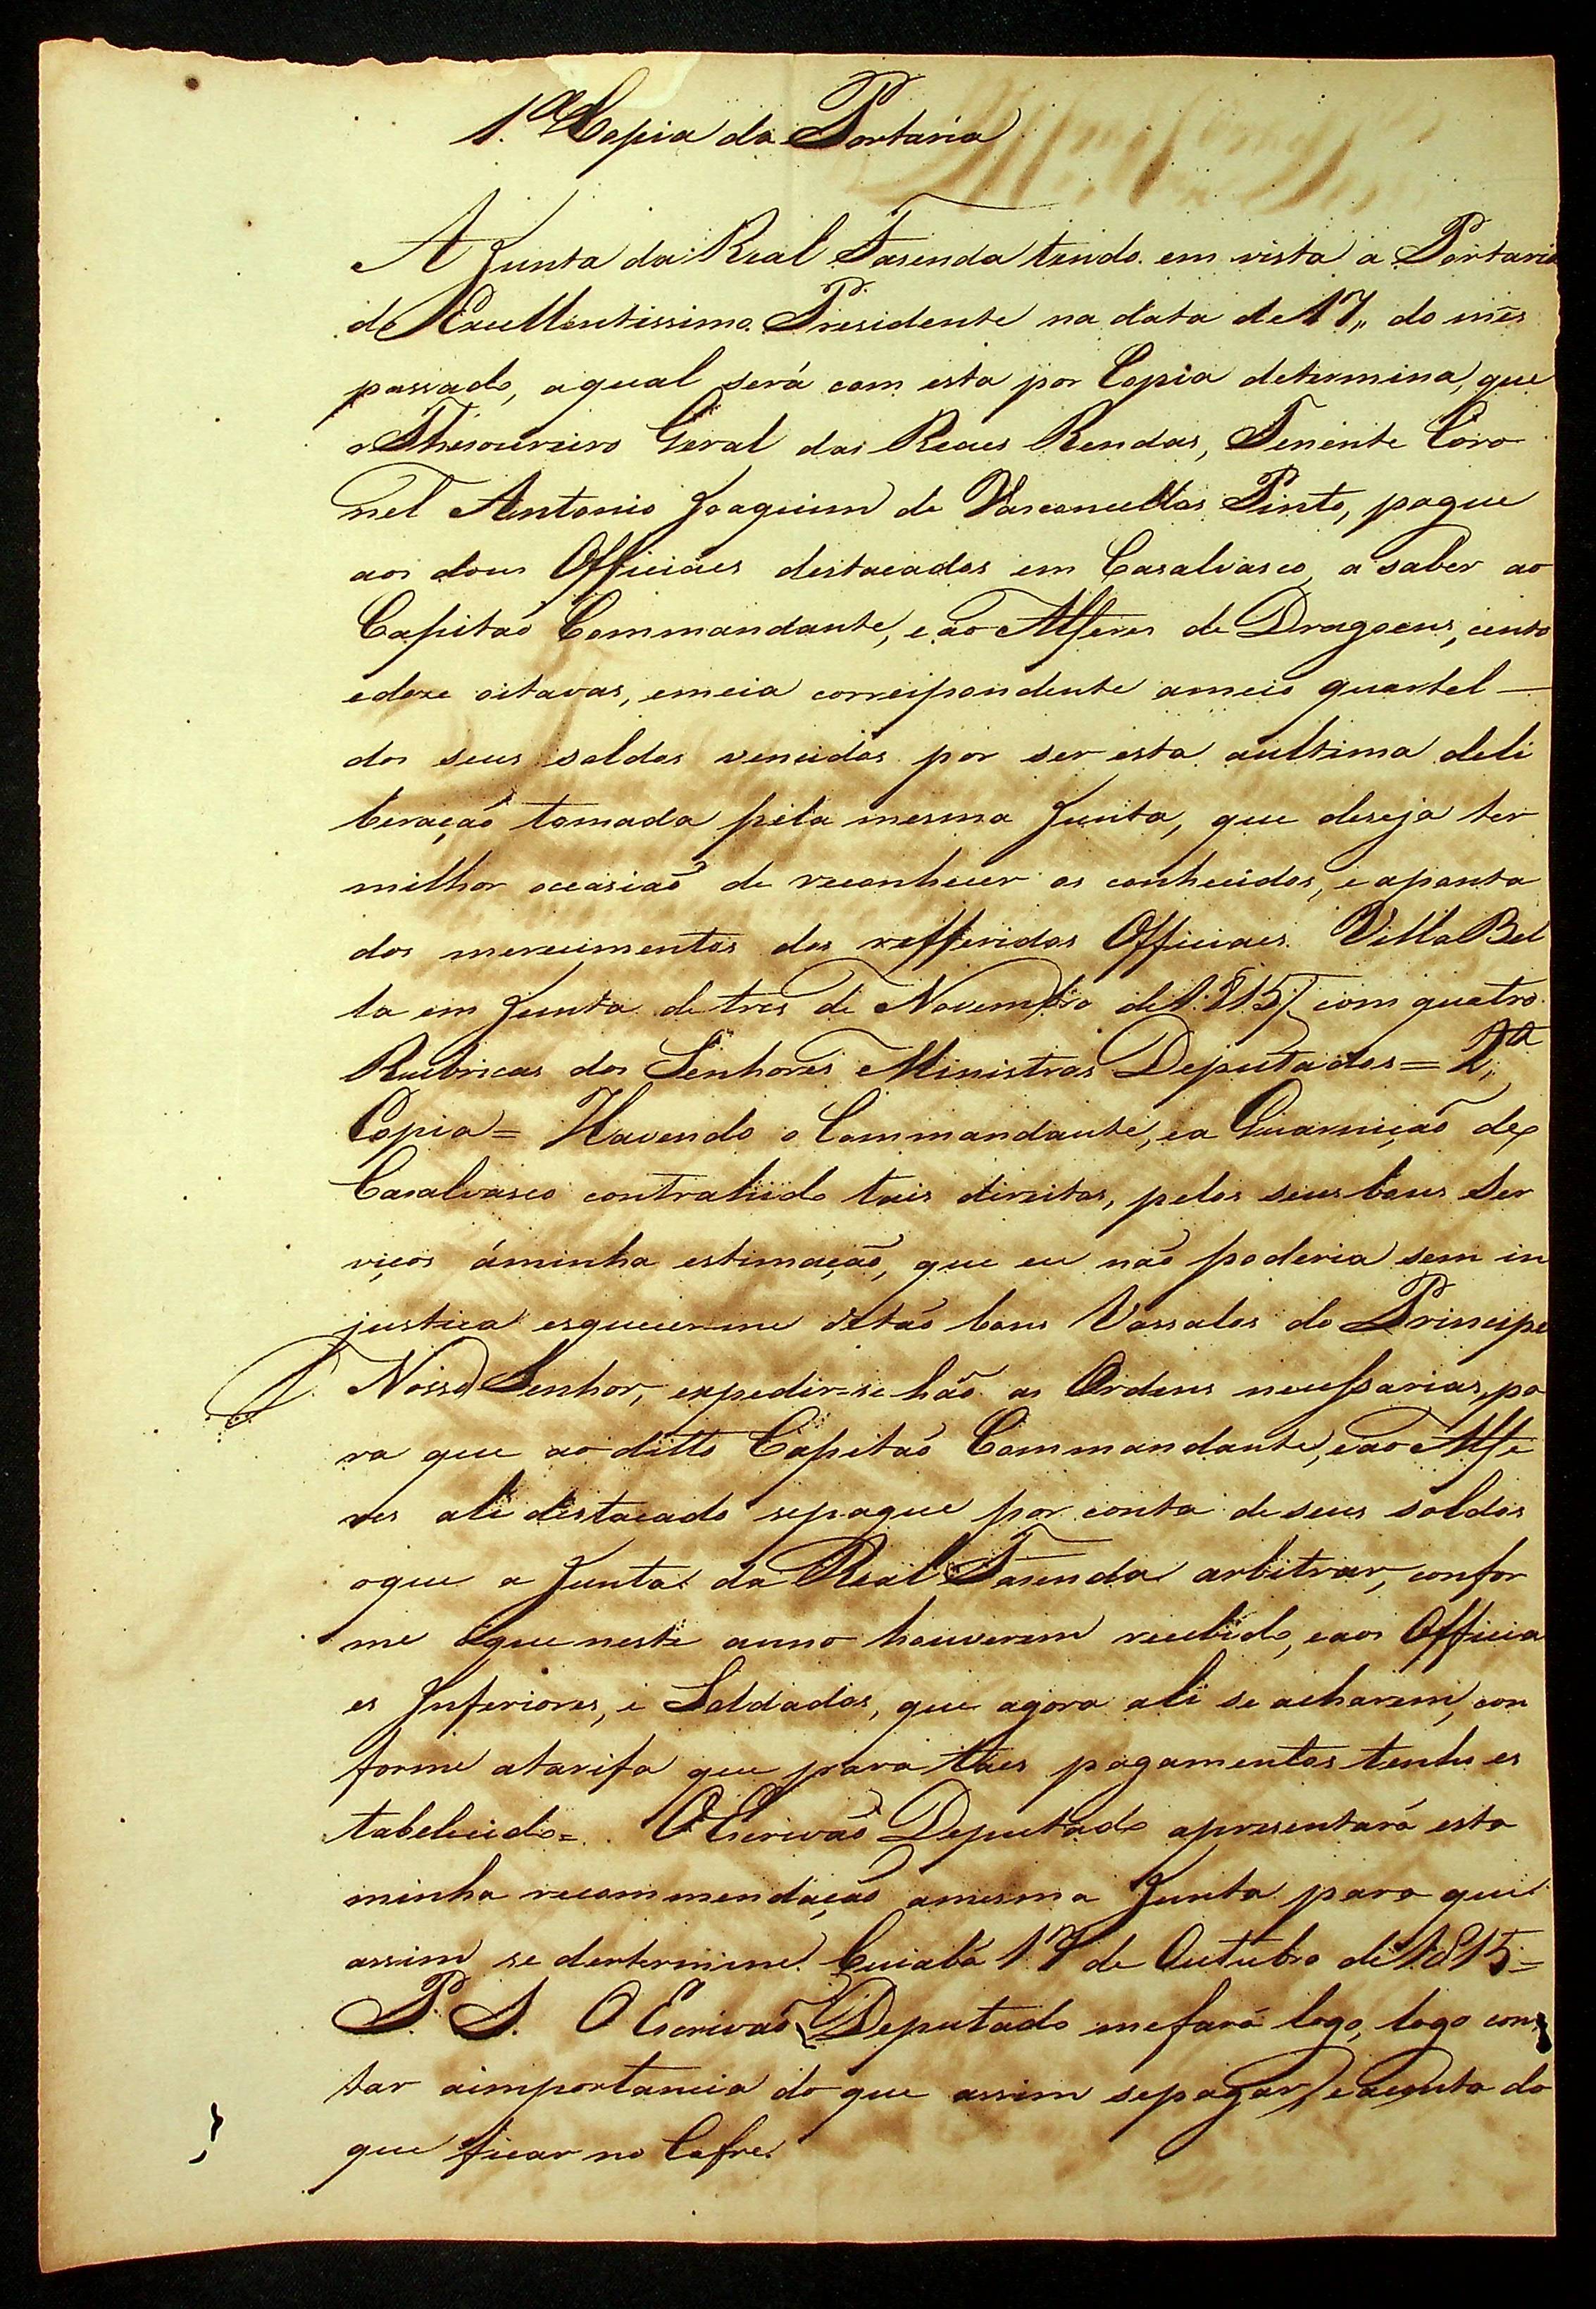 1.ª Copia da Portaria
A Junta da Real Fasenda tendo em vista a Portaria
de Excellentissimo Presidente na data de 17,, do mês
passado, aqual será com esta por Copia determina, que
o Thesoureiro Geral das Reaes Rendas, Tenente Coro
nel Antonio Joaquim de Vasconcellos Pinto, pague
aos dous Officiaes destacados em Casalvasco, a saber ao
Capitaõ Commandante, e ao Alferes de Dragoens, cento
edoze oitavas, emeia correspondente ameio quartel —
dos seus soldos vencidos por ser esta aultima deli
beraçaõ tomada pela mesma Junta, que deseja ter
milhor occasiaõ de reconhecer os conhecidos, e aponta
dos merecimentos dos refferidos Officiaes. Villa Bel
la em Junta de tres de Novembro de 1815 / com quatro
Rubricas dos Senhores Ministros Deputados = 2,,ª
Copia = Havendo o Commandante, ea Guarniçaõ de
Casalvasco contrahido tais direitos, pelos seus bons Ser
viços áminha estimaçaõ, que eu naõ poderia sem in
justica esquecerme detaõ bons Vassalos do Principe
N. Nosso Senhor, expedir-se-haõ as Ordens necessarias, pa
ra que ao ditto Capitaõ Commandante, e ao Alfe
res ali destacado sepague por conta de seus soldos
oque a Junta da Real Fasenda arbitrar, confor
me oque neste anno houverem recebido, eaos Officia
es Inferiores, e Soldados, que agora ali se acharem, con
forme atarifa que para táes pagamentos tenho es
tabelecido =. O Escrivaõ Deputado apresentará esta
minha recommendaçaõ amesma Junta para que
assim se dertermine. Cuiabá 17 de Outubro de 1815 =
P. S. O Escrivaõ Deputado mefará logo, logo cons
tar aimportancia do que assim sepagar, e aconta do
que ficar no Cofre.